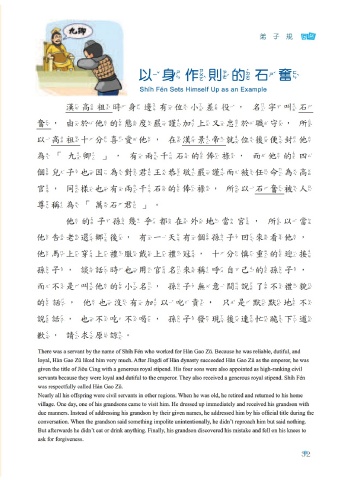 弟子規
九卿
以身作則的石奮
Shíh Fèn Sets Himself Up as an Example
漢高祖時身邊有位小差役，名字叫石
奮，由於他的態度嚴謹加上又忠於職守，所
以高祖十分喜愛他，在漢景帝就位後便封他
為「九卿」，有兩千石的俸祿，而他的四
個兒子也因為對君王恭敬嚴謹而被任命為高
官，同樣也有兩千石的俸祿，所以石奮被人
尊稱為「萬石君」。
他的子孫幾乎都在外地當官，所以當
他告老還鄉後，有一天有個孫子回來看他，
他馬上穿上禮服戴上禮冠，十分慎重的迎接
孫子，談話時也用官名來稱呼自己的孫子，
而不是叫他的小名，孫子無意間說了不禮貌
的話，他也沒有加以叱責，只是默默地不
說話，也不吃不喝，孫子發現後連忙跪下道
歉，請求原諒。
There was a servant by the name of Shíh Fèn who worked for Hàn Gao Zǔ. Because he was reliable, dutiful, and
loyal, Hàn Gao Zǔ liked him very much. After Jingdi of Hàn dynasty succeeded Hàn Gao Zǔ as the emperor, he was
given the title of Jiǔu Cing with a generous royal stipend. His four sons were also appointed as high-ranking civil
servants because they were loyal and dutiful to the emperor. They also received a generous royal stipend. Shíh Fèn
was respectfully called Hàn Gao Zǔ.
Nearly all his offspring were civil servants in other regions. When he was old, he retired and returned to his home
village. One day, one of his grandsons came to visit him. He dressed up immediately and received his grandson with
due manners. Instead of addressing his grandson by their given names, he addressed him by his official title during the
conversation. When the grandson said something impolite unintentionally, he didn't reproach him but said nothing.
But afterwards he didn't eat or drink anything. Finally, his grandson discovered his mistake and fell on his knees to
ask for forgiveness.